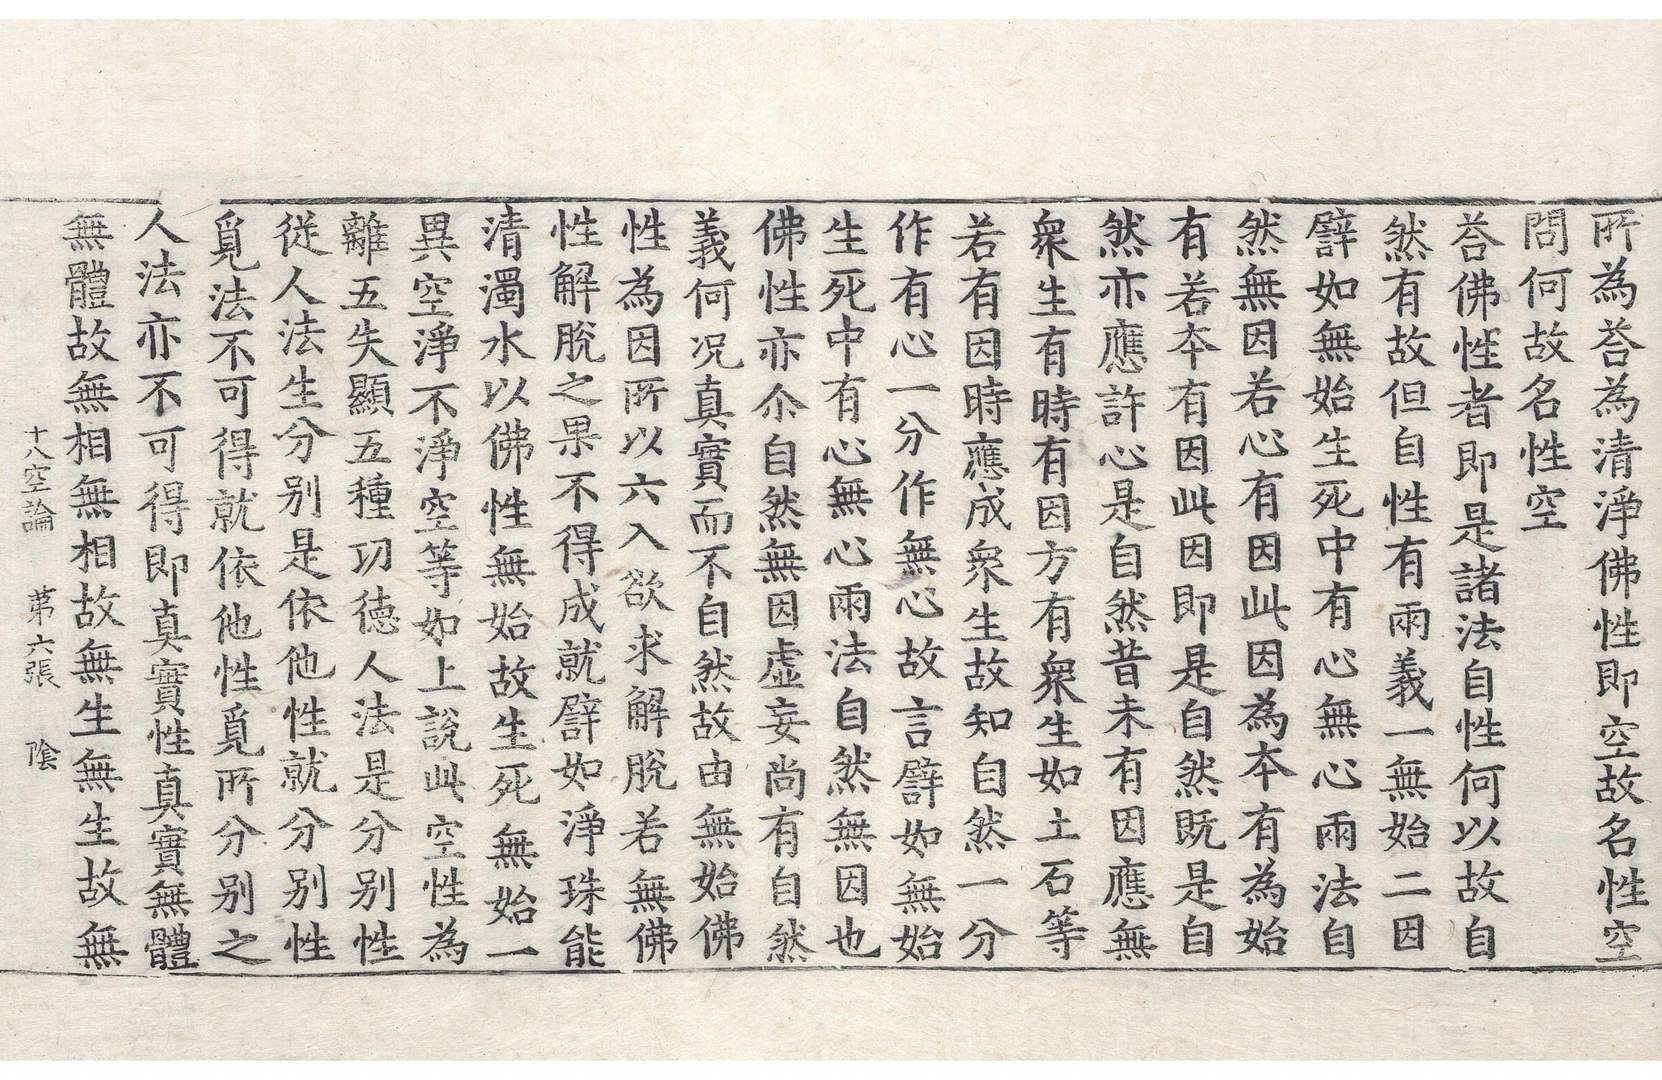 所為荅為清淨佛性即空故名性空
問何故名性空
荅佛性者即是諸法自性何以故自
然有故但自性有兩義一無始二因
譬如無始生死中有心無心兩法自
然無因若心有因此因為本有為始
有若本有因此因即是自然既是自
然亦應許心是自然昔未有因應無
衆生有時有因方有衆生如土石等
若有因時應成衆生故知自然一分
作有心一分作無心故言譬如無始
生死中有心無心兩法自然無因也
佛性亦尒自然無因虛妄尚有自然
義何况真實而不自然故由無始佛
性為因所以六入欲求解脫若無佛
性解脫之果不得成就譬如淨珠能
清濁水以佛性無始故生死無始一
異空淨不淨空等如上說此空性為
離五失顯五種功德人法是分別性
從人法生分別是依他性就分別性
覓法不可得就依他性覓所分別之
人法亦不可得即真實性真實無體
無體故無相無相故無生無生故無
十八空論 第六張 陰